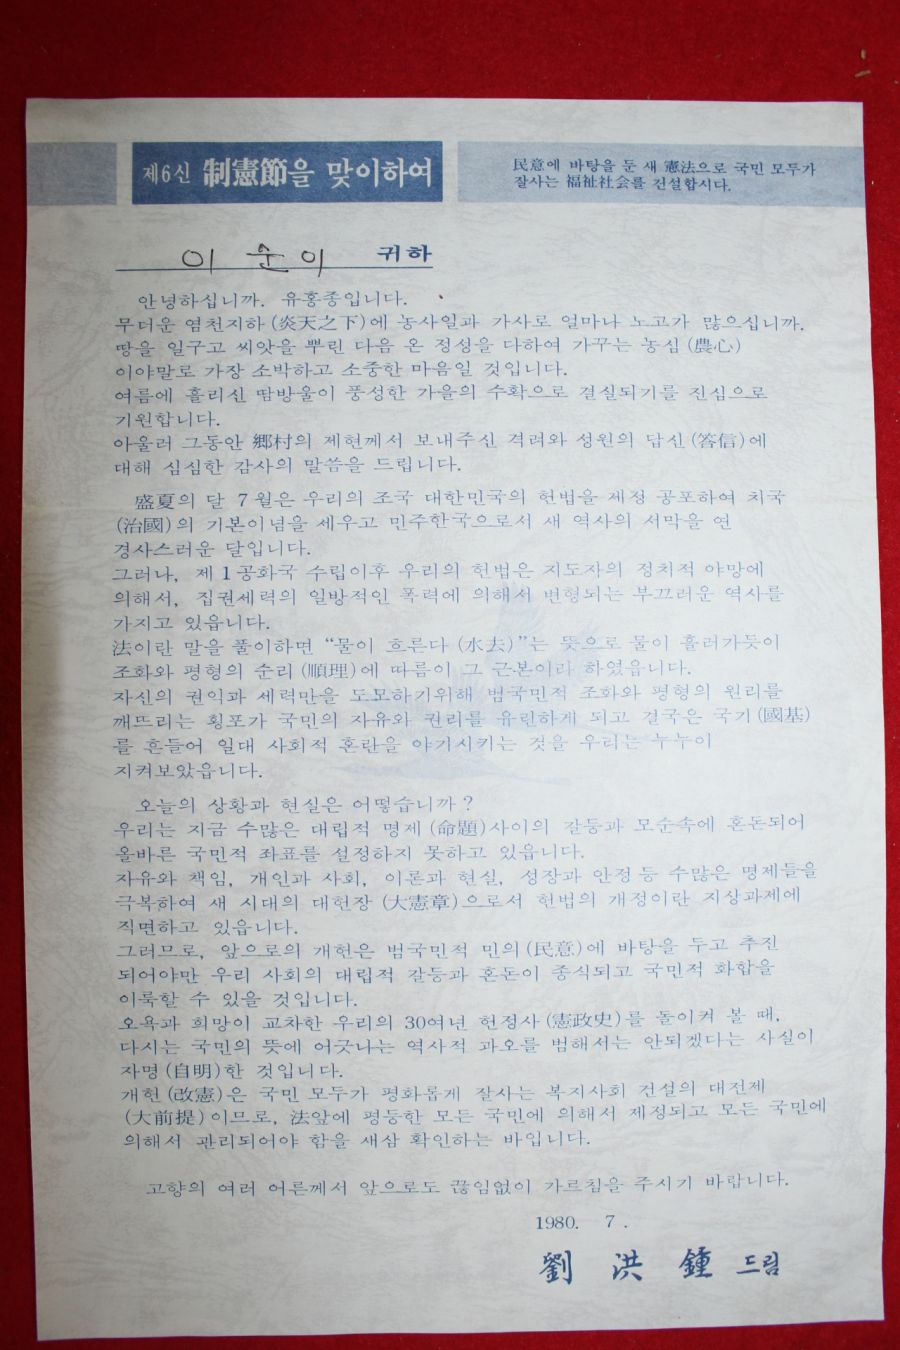 제6신 制憲節을 맞이하여
民意에 바탕을 둔 새 憲法으로 국민 모두가
잘사는 福祉社会를 건설합시다.
이 순 이 귀하
안녕하십니까. 유홍종입니다.
무더운 염천지하(炎天之下)에 농사일과 가사로 얼마나 노고가 많으십니까.
땅을 일구고 씨앗을 뿌린 다음 온 정성을 다하여 가꾸는 농심(農心)
이야말로 가장 소박하고 소중한 마음일 것입니다.
여름에 흘리신 땀방울이 풍성한 가을의 수확으로 결실되기를 진심으로
기원합니다.
아울러 그동안 鄕村의 제현께서 보내주신 격려와 성원의 답신(答信)에
대해 심심한 감사의 말씀을 드립니다.
盛夏의 달 7월은 우리의 조국 대한민국의 헌법을 제정 공포하여 치국
(治國)의 기본이념을 세우고 민주한국으로서 새 역사의 서막을 연
경사스러운 달입니다.
그러나, 제1공화국 수립이후 우리의 헌법은 지도자의 정치적 야망에
의해서, 집권세력의 일방적인 폭력에 의해서 변형되는 부끄러운 역사를
가지고 있읍니다.
法이란 말을 풀이하면 “물이 흐른다 (水去)”는 뜻으로 물이 흘러가듯이
조화와 평형의 순리(順理)에 따름이 그 근본이라 하였읍니다.
자신의 권익과 세력만을 도모하기위해 범국민적 조화와 평형의 원리를
깨뜨리는 횡포가 국민의 자유와 권리를 유린하게 되고 결국은 국기(國基)
를 흔들어 일대 사회적 혼란을 야기시키는 것을 우리는 누누이
지켜보았읍니다.
오늘의 상황과 현실은 어떻습니까?
우리는 지금 수많은 대립적 명제(命題)사이의 갈등과 모순속에 혼돈되어
올바른 국민적 좌표를 설정하지 못하고 있읍니다.
자유와 책임, 개인과 사회, 이론과 현실, 성장과 안정등 수많은 명제들을
극복하여 새 시대의 대헌장 (大憲章)으로서 헌법의 개정이란 지상과제에
직면하고 있읍니다.
그러므로, 앞으로의 개헌은 범국민적 민의(民意)에 바탕을 두고 추진
되어야만 우리 사회의 대립적 갈등과 혼돈이 종식되고 국민적 화합을
이룩할 수 있을 것입니다.
오욕과 희망이 교차한 우리의 30여년 헌정사(憲政史)를 돌이켜 볼 때,
다시는 국민의 뜻에 어긋나는 역사적 과오를 범해서는 안되겠다는 사실이
자명(自明)한 것입니다.
개헌(改憲)은 국민 모두가 평화롭게 잘사는 복지사회 건설의 대전제
(大前提)이므로, 法앞에 평등한 모든 국민에 의해서 제정되고 모든 국민에
의해서 관리되어야 함을 새삼 확인하는 바입니다.
고향의 여러 어른께서 앞으로도 끊임없이 가르침을 주시기 바랍니다.
1980. 7.
劉 洪 鍾 드림